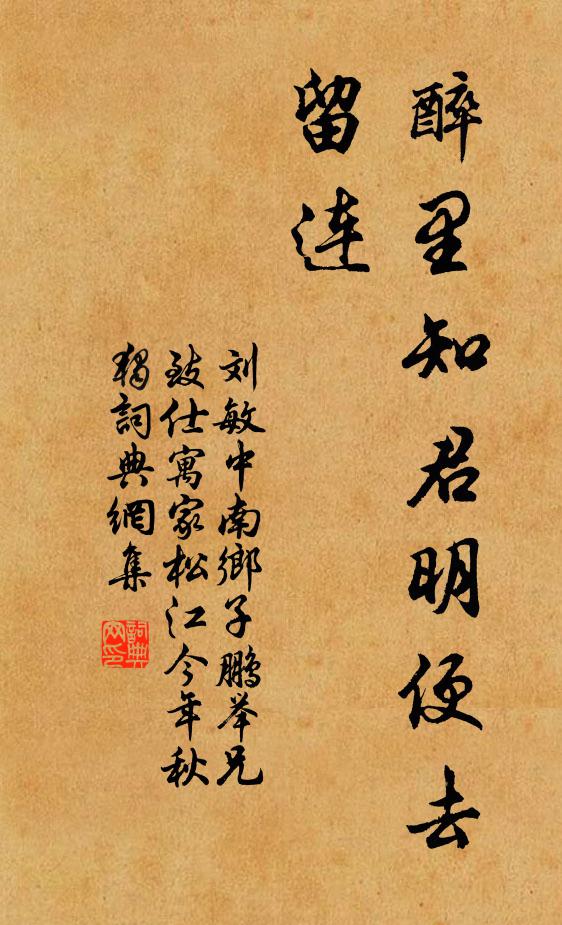 醉里知君明便去
留連
刘敏中南鄉子鹏举兄
致仕寓家松江今年秋
獨詞典網集
詞典
网印